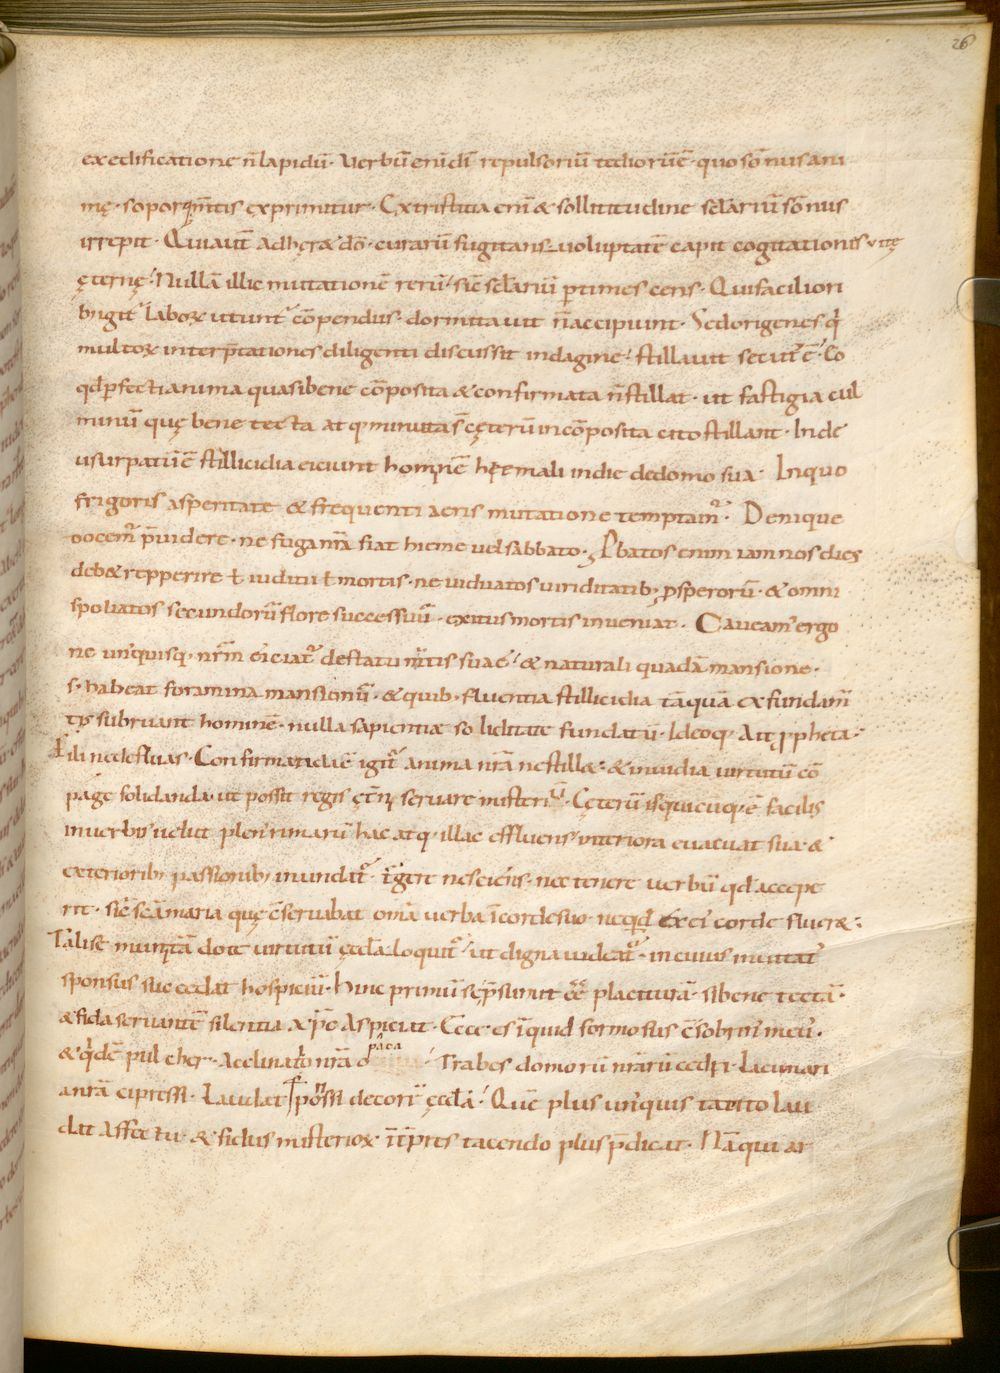 26
ex edificatione n̄ lapidū· Verbū enī dī repulsoriū tediorū ē· quo sōnus ani
mę· soporq; mtis exprimitur· Ex tristitia enī & sollicitudine sclariū sōnus
irrepit· Qui aut̄ adhęr& dō· curarū fugitans voluptatē capit cogitationis· vitę
ęternę· Nullā illic mutationē rerū· sic̄ sclariū ptimesceris· Qui faciliori
labore utunt̄ cōpendiis· dormitavit n̄ accipiunt· Sed origenes q̄
multoꝝ interp̄tationes diligenti discussit indagine· stillavit secut̄ ē· Eo
qd pfecti anima quasi bene cōposita & confirmata n̄ stillat· ut fastigia cul
minū quę bene tecta atq; minuta s̄ cęterū incōposita cito stillant· Inde
usurpatū ē stillicidia eiciunt hominē hiemali in die de domo sua· In quo
frigoris asperitate & frequenti aeris mutatione temptam̄· Denique
docem̄ p̄videre· ne fuga nr̄a fiat hieme vel sabbato· Pbatos enim iam nos dies
deb& repperire ł iudicii ł mortis· ne viduatos viriditatib; psperorū· & omni
spoliatos secundorū flore successuū· exitus mortis inveniat· Caveam̄ ergo
ne un'quisq; nr̄m eiciat̄ de statu mtis suae· & naturali quadā mansione·
s· habeat foramina mansionū· & quib; fluentia stillicidia tāquā ex fundam̄
tis subruant hominē· nulla sapientiae soliditate fundatū· Ideoq; Ait ppheta·
Fili ne defluas· Confirmanda ē igit̄ anima nr̄a ne still&· & invidia virtutū cō
page solidanda· ut possit regis ętn̄i servare misteriū· Cęterū is qui cuiq; ē facilis
in verbis velut plen' rimarū hac atq; illac effluens interiora evacuat sua· &
exteriorib; passionib; inundat̄· tegere nesciens· nec tenere verbū qd accepe
rit· sic̄ scā maria quę cservabat om̄a verba ī corde suo· ne qd ex ei' corde fluer&·
Talis ē dote virtutū ęccla loquit̄· ut digna videat̄· in cuius
sponsus succedat hospiciū· Hinc primū placiturā· si bene tectā·
& fida servantē silentia xp̄c aspiciat· Ecce· es inquid formosus c̄sobrin' meus·
& qdē pulcher· Acclinatio nr̄a opaca· Trabes domorū nr̄arū cedri· Lacunari
a nr̄a cipressi· Laudat sponsi decorē ęccla· Quē plus un'quis tacito lau
dat affectu· & fidus misterioꝝ īt̄pres tacendo plus p̄dicat· Nā qui ar